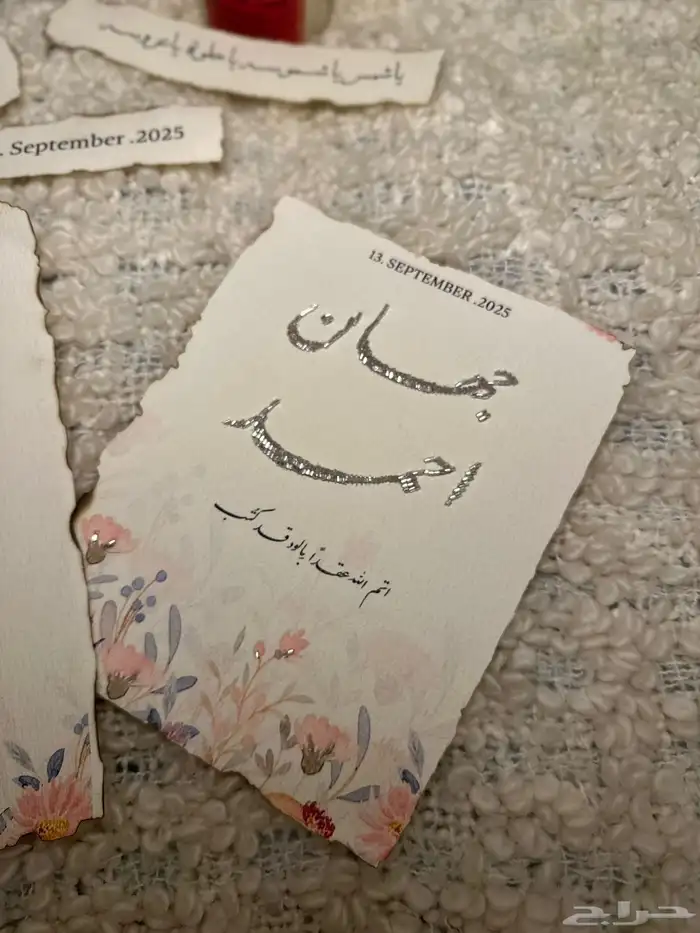 يا شمس يا شمسه يا طوق يا عروسه
. September .2025
13. SEPTEMBER .2025
جهان
احمد
اتم الله عقدًا بالود قد كتب
حراج